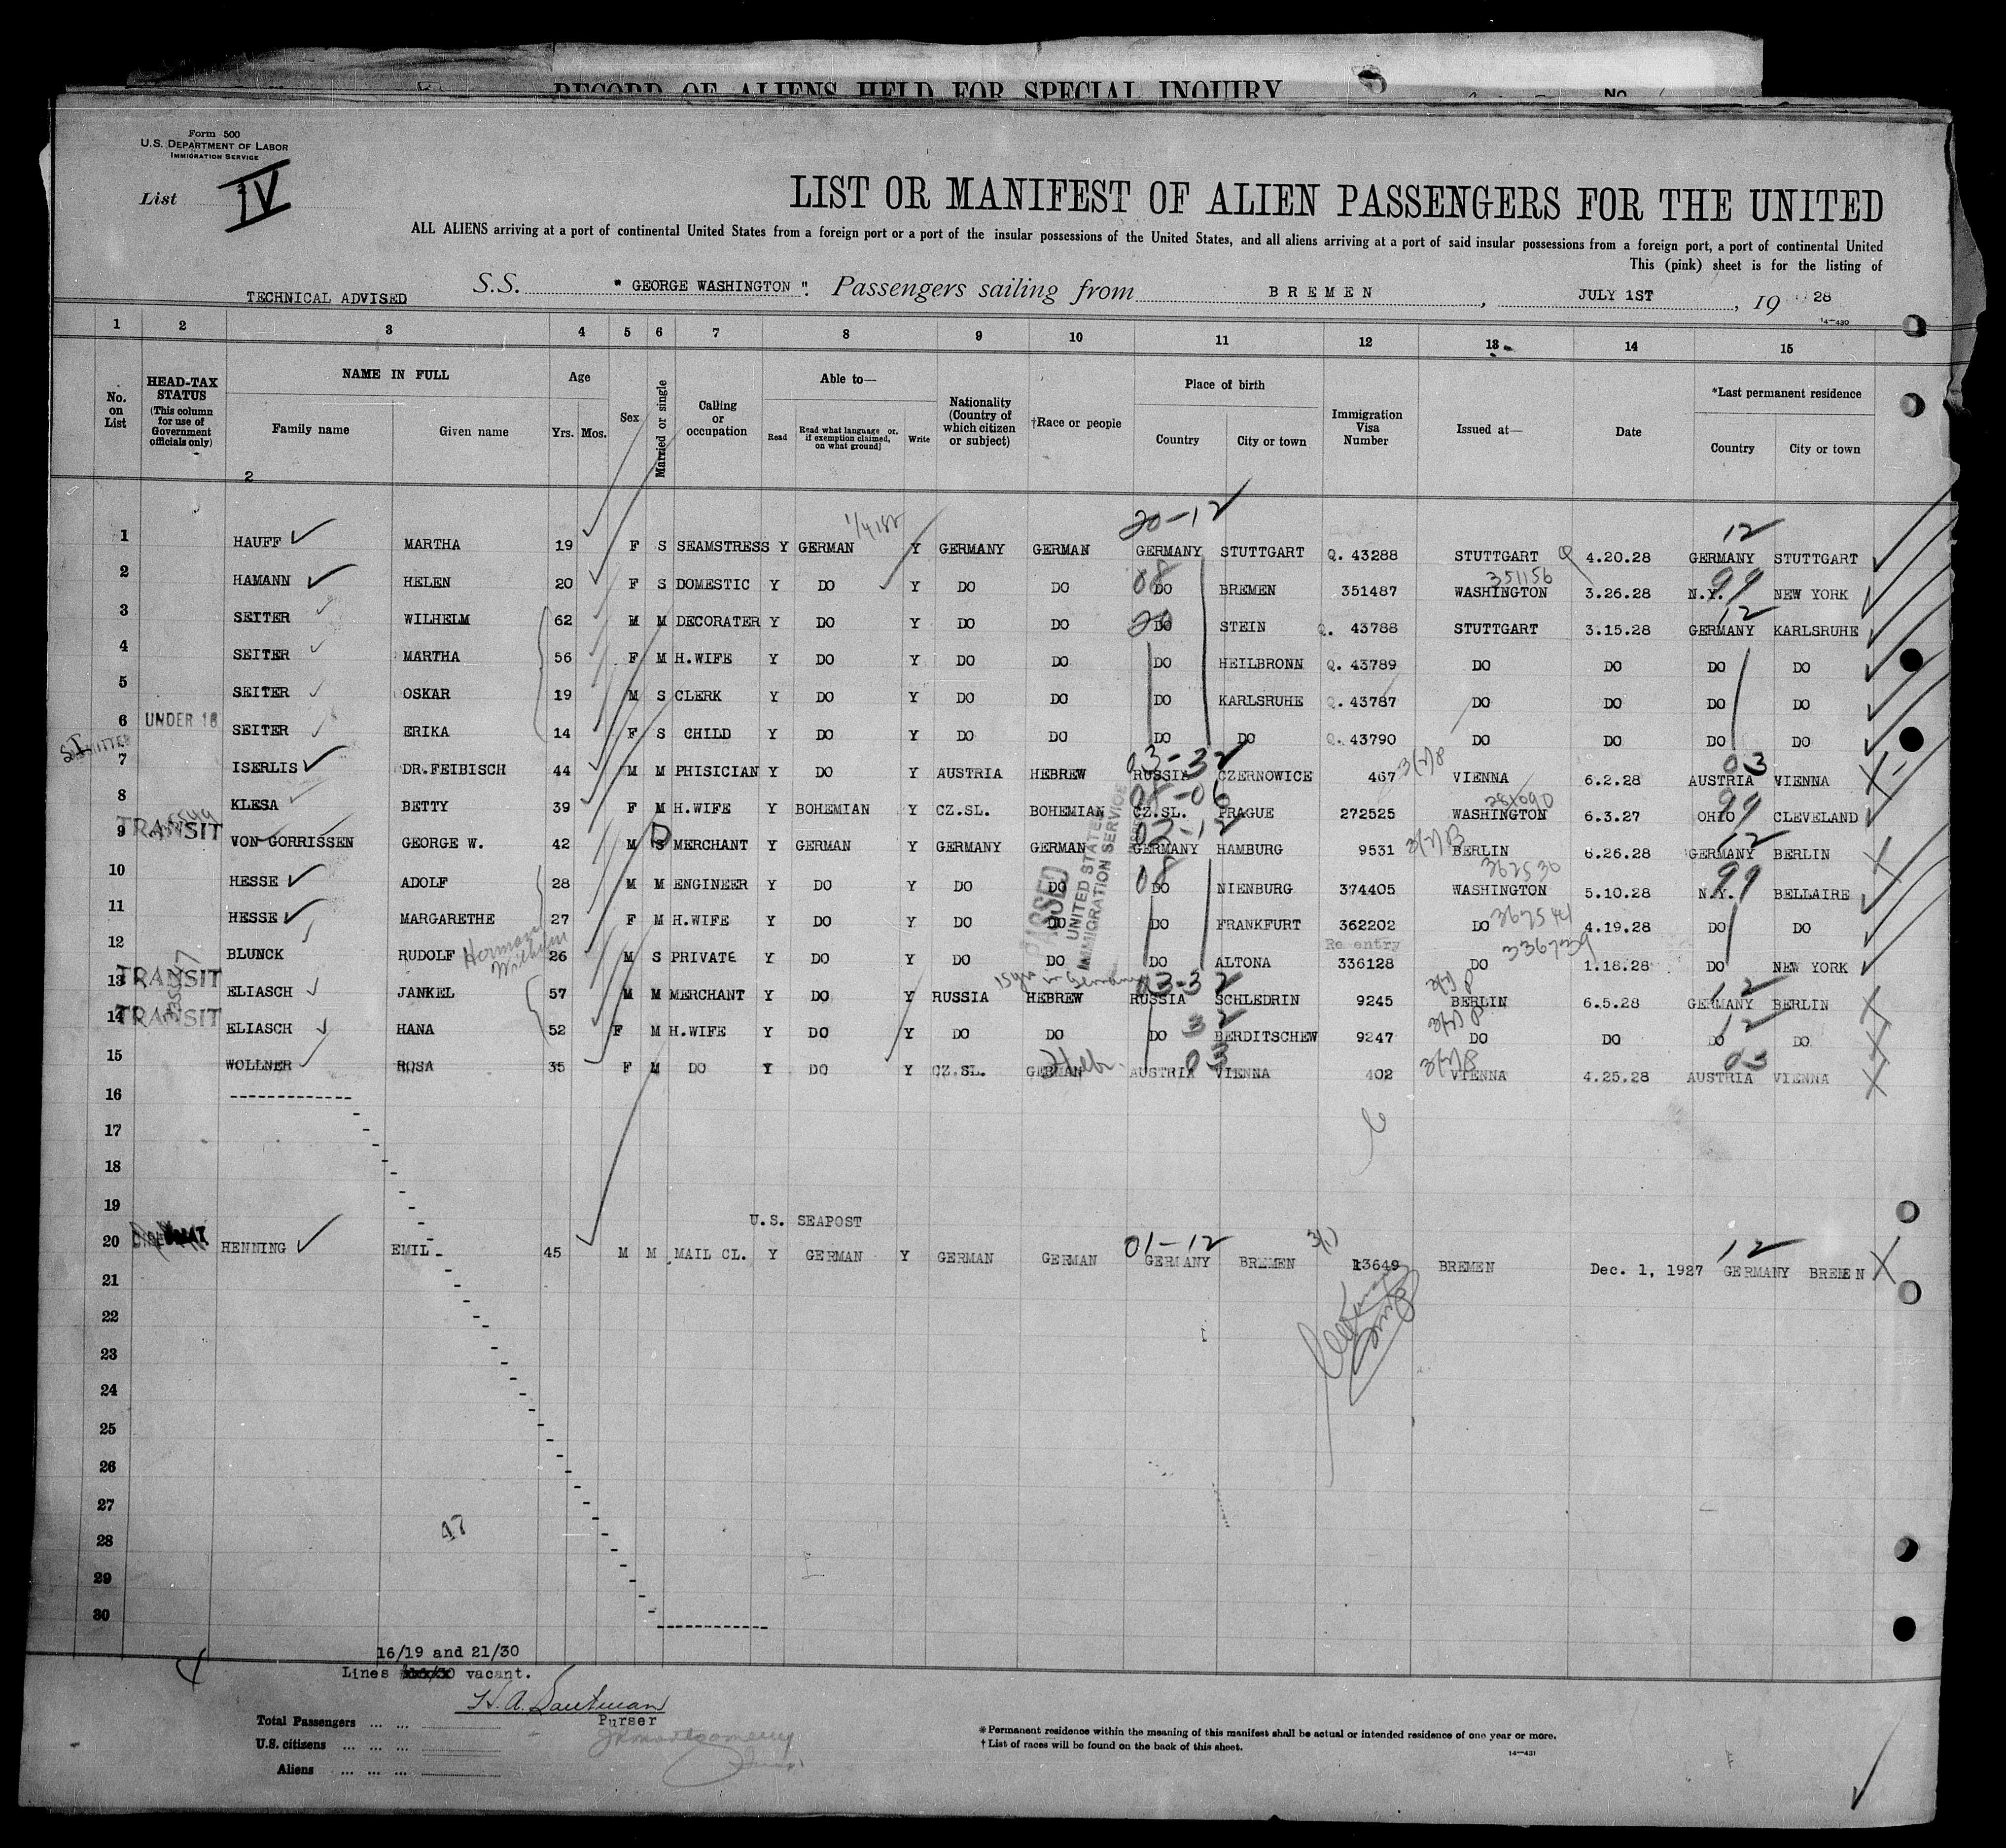 RECORD OF ALIENS HELD FOR SPECIAL INQUIRY
No.
Form 500
U.S. DEPARTMENT OF LABOR
IMMIGRATION SERVICE
List IV
LIST OR MANIFEST OF ALIEN PASSENGERS FOR THE UNITED
ALL ALIENS arriving at a port of continental United States from a foreign port or a port of the insular possessions of the United States, and all aliens arriving at a port of said insular possessions from a foreign port, a port of continental United
This (pink) sheet is for the listing of
TECHNICAL ADVISED S.S. "GEORGE WASHINGTON". Passengers sailing from BREMEN, JULY 1ST, 1928
14—430
1 2 3 4 5 6 7 8 9 10 11 12 13 14 15
No. on List
HEAD-TAX STATUS (This column for use of Government officials only)
NAME IN FULL
Family name
Given name
Age
Yrs. Mos.
Sex
Married or single
Calling or occupation
Able to—
Read
Read what language or, if exemption claimed, on what ground]
Write
Nationality (Country of which citizen or subject)
†Race or people
Place of birth
Country
City or town
Immigration Visa Number
Issued at—
Date
*Last permanent residence
Country
City or town
2
20-12 12
1 HAUFF MARTHA 19 F S SEAMSTRESS Y GERMAN Y GERMANY GERMAN GERMANY STUTTGART Q. 43288 STUTTGART Q 4.20.28 GERMANY STUTTGART
08 351156 99
2 HAMANN HELEN 20 F S DOMESTIC Y DO Y DO DO DO BREMEN 351487 WASHINGTON 3.26.28 N.Y. NEW YORK
20 12
3 SEITER WILHELM 62 M M DECORATER Y DO Y DO DO DO STEIN Q. 43788 STUTTGART 3.15.28 GERMANY KARLSRUHE
4 SEITER MARTHA 56 F M H.WIFE Y DO Y DO DO DO HEILBRONN Q. 43789 DO DO DO DO
5 SEITER OSKAR 19 M S CLERK Y DO Y DO DO DO KARLSRUHE Q. 43787 DO DO DO DO
6 UNDER 16 SEITER ERIKA 14 F S CHILD Y DO Y DO DO DO DO Q. 43790 DO DO DO DO
S.I. 03-32 3(2)8 03
7 ISERLIS DR.FEIBISCH 44 M M PHISICIAN Y DO Y AUSTRIA HEBREW RUSSIA CZERNOWICE 467 VIENNA 6.2.28 AUSTRIA VIENNA
08-06 99
8 KLESA BETTY 39 F M H.WIFE Y BOHEMIAN Y CZ.SL. BOHEMIAN CZ.SL. PRAGUE 272525 WASHINGTON 6.3.27 OHIO CLEVELAND
TRANSIT D 03-12 3(2)B 12
9 VON GORRISSEN GEORGE W. 42 M S MERCHANT Y GERMAN Y GERMANY GERMAN GERMANY HAMBURG 9531 BERLIN 6.26.28 GERMANY BERLIN
08 362530 99
10 HESSE ADOLF 28 M M ENGINEER Y DO Y DO DO DO NIENBURG 374405 WASHINGTON 5.10.28 N.Y. BELLAIRE
11 HESSE MARGARETHE 27 F M H.WIFE Y DO Y DO DO DO FRANKFURT 362202 DO 4.19.28 DO DO
Hermann Wilhelm Re entry 336739
12 BLUNCK RUDOLF 26 M S PRIVATE Y DO Y DO DO DO ALTONA 336128 DO 1.18.28 DO NEW YORK
PASSED
UNITED STATES
IMMIGRATION SERVICE
TRANSIT 15 yrs in Germany 03-32 12
13 ELIASCH JANKEL 57 M M MERCHANT Y DO Y RUSSIA HEBREW RUSSIA SCHLEDRIN 9245 BERLIN 6.5.28 GERMANY BERLIN
TRANSIT 32 12
14 ELIASCH HANA 52 F M H.WIFE Y DO Y DO DO DO BERDITSCHEW 9247 DO DO DO DO
Heb. 03 3(2)8 03
15 WOLLNER ROSA 35 F M DO Y DO Y CZ.SL. GERMAN AUSTRIA VIENNA 402 VIENNA 4.25.28 AUSTRIA VIENNA
16
17
18
19
U.S. SEAPOST
01-12 3(1) 12
20 HENNING EMIL 45 M M MAIL CL. Y GERMAN Y GERMAN GERMAN GERMANY BREMEN 13649 BREMEN Dec. 1, 1927 GERMANY BREMEN
21
22
23
24
25
26
27
28
29
30
47
16/19 and 21/30
Lines vacant.
H. A. Lautman
Purser
Total Passengers ... ...
U.S. citizens ... ... ...
Aliens ... ... ...
JRMontgomery
*Permanent residence within the meaning of this manifest shall be actual or intended residence of one year or more.
†List of races will be found on the back of this sheet.
14—431